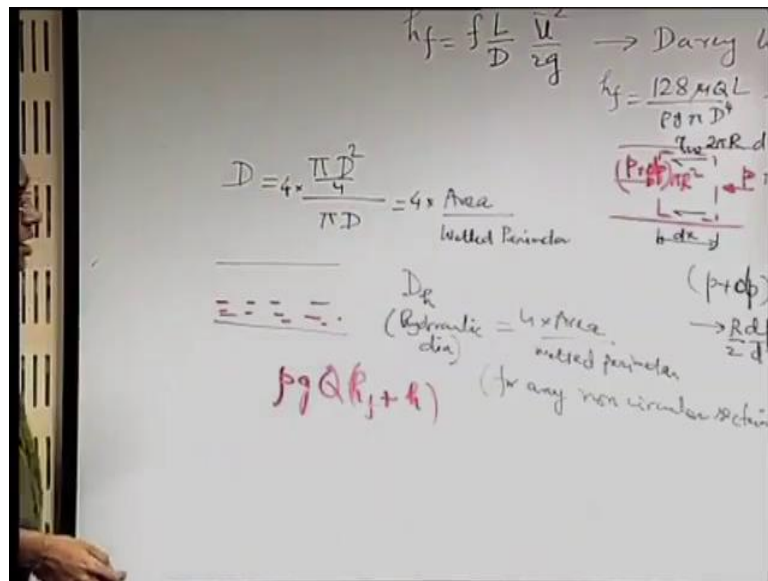 hf = f L/D ū²/2g → Darcy
hf = 128 μQL / ρgπD⁴
τw 2πR d
D = 4 × (πD²/4) / πD = 4 × Area / Wetted Perimeter
(p+dp)πR² p
dx
Dh
(Hydraulic dia) = 4 × Area / wetted perimeter
(p+dp)
→ R/2
(for any non circular section
ρgQ(hf + h)